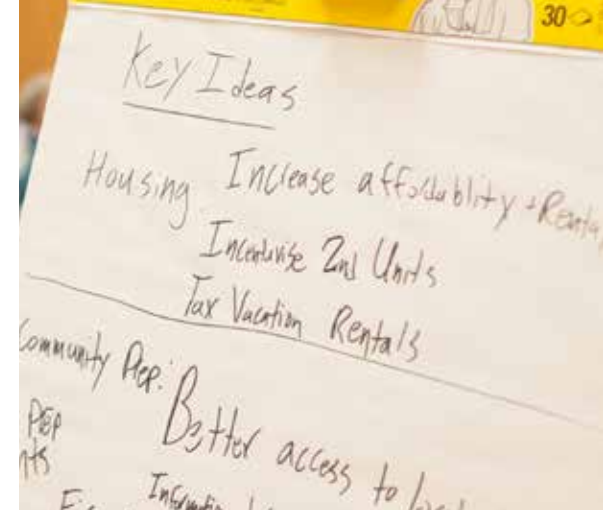 30
Key Ideas
Housing Increase affordablity + Rental
Incentivise 2nd Units
Tax Vacation Rentals
Community Rep:
Better access to
Rep